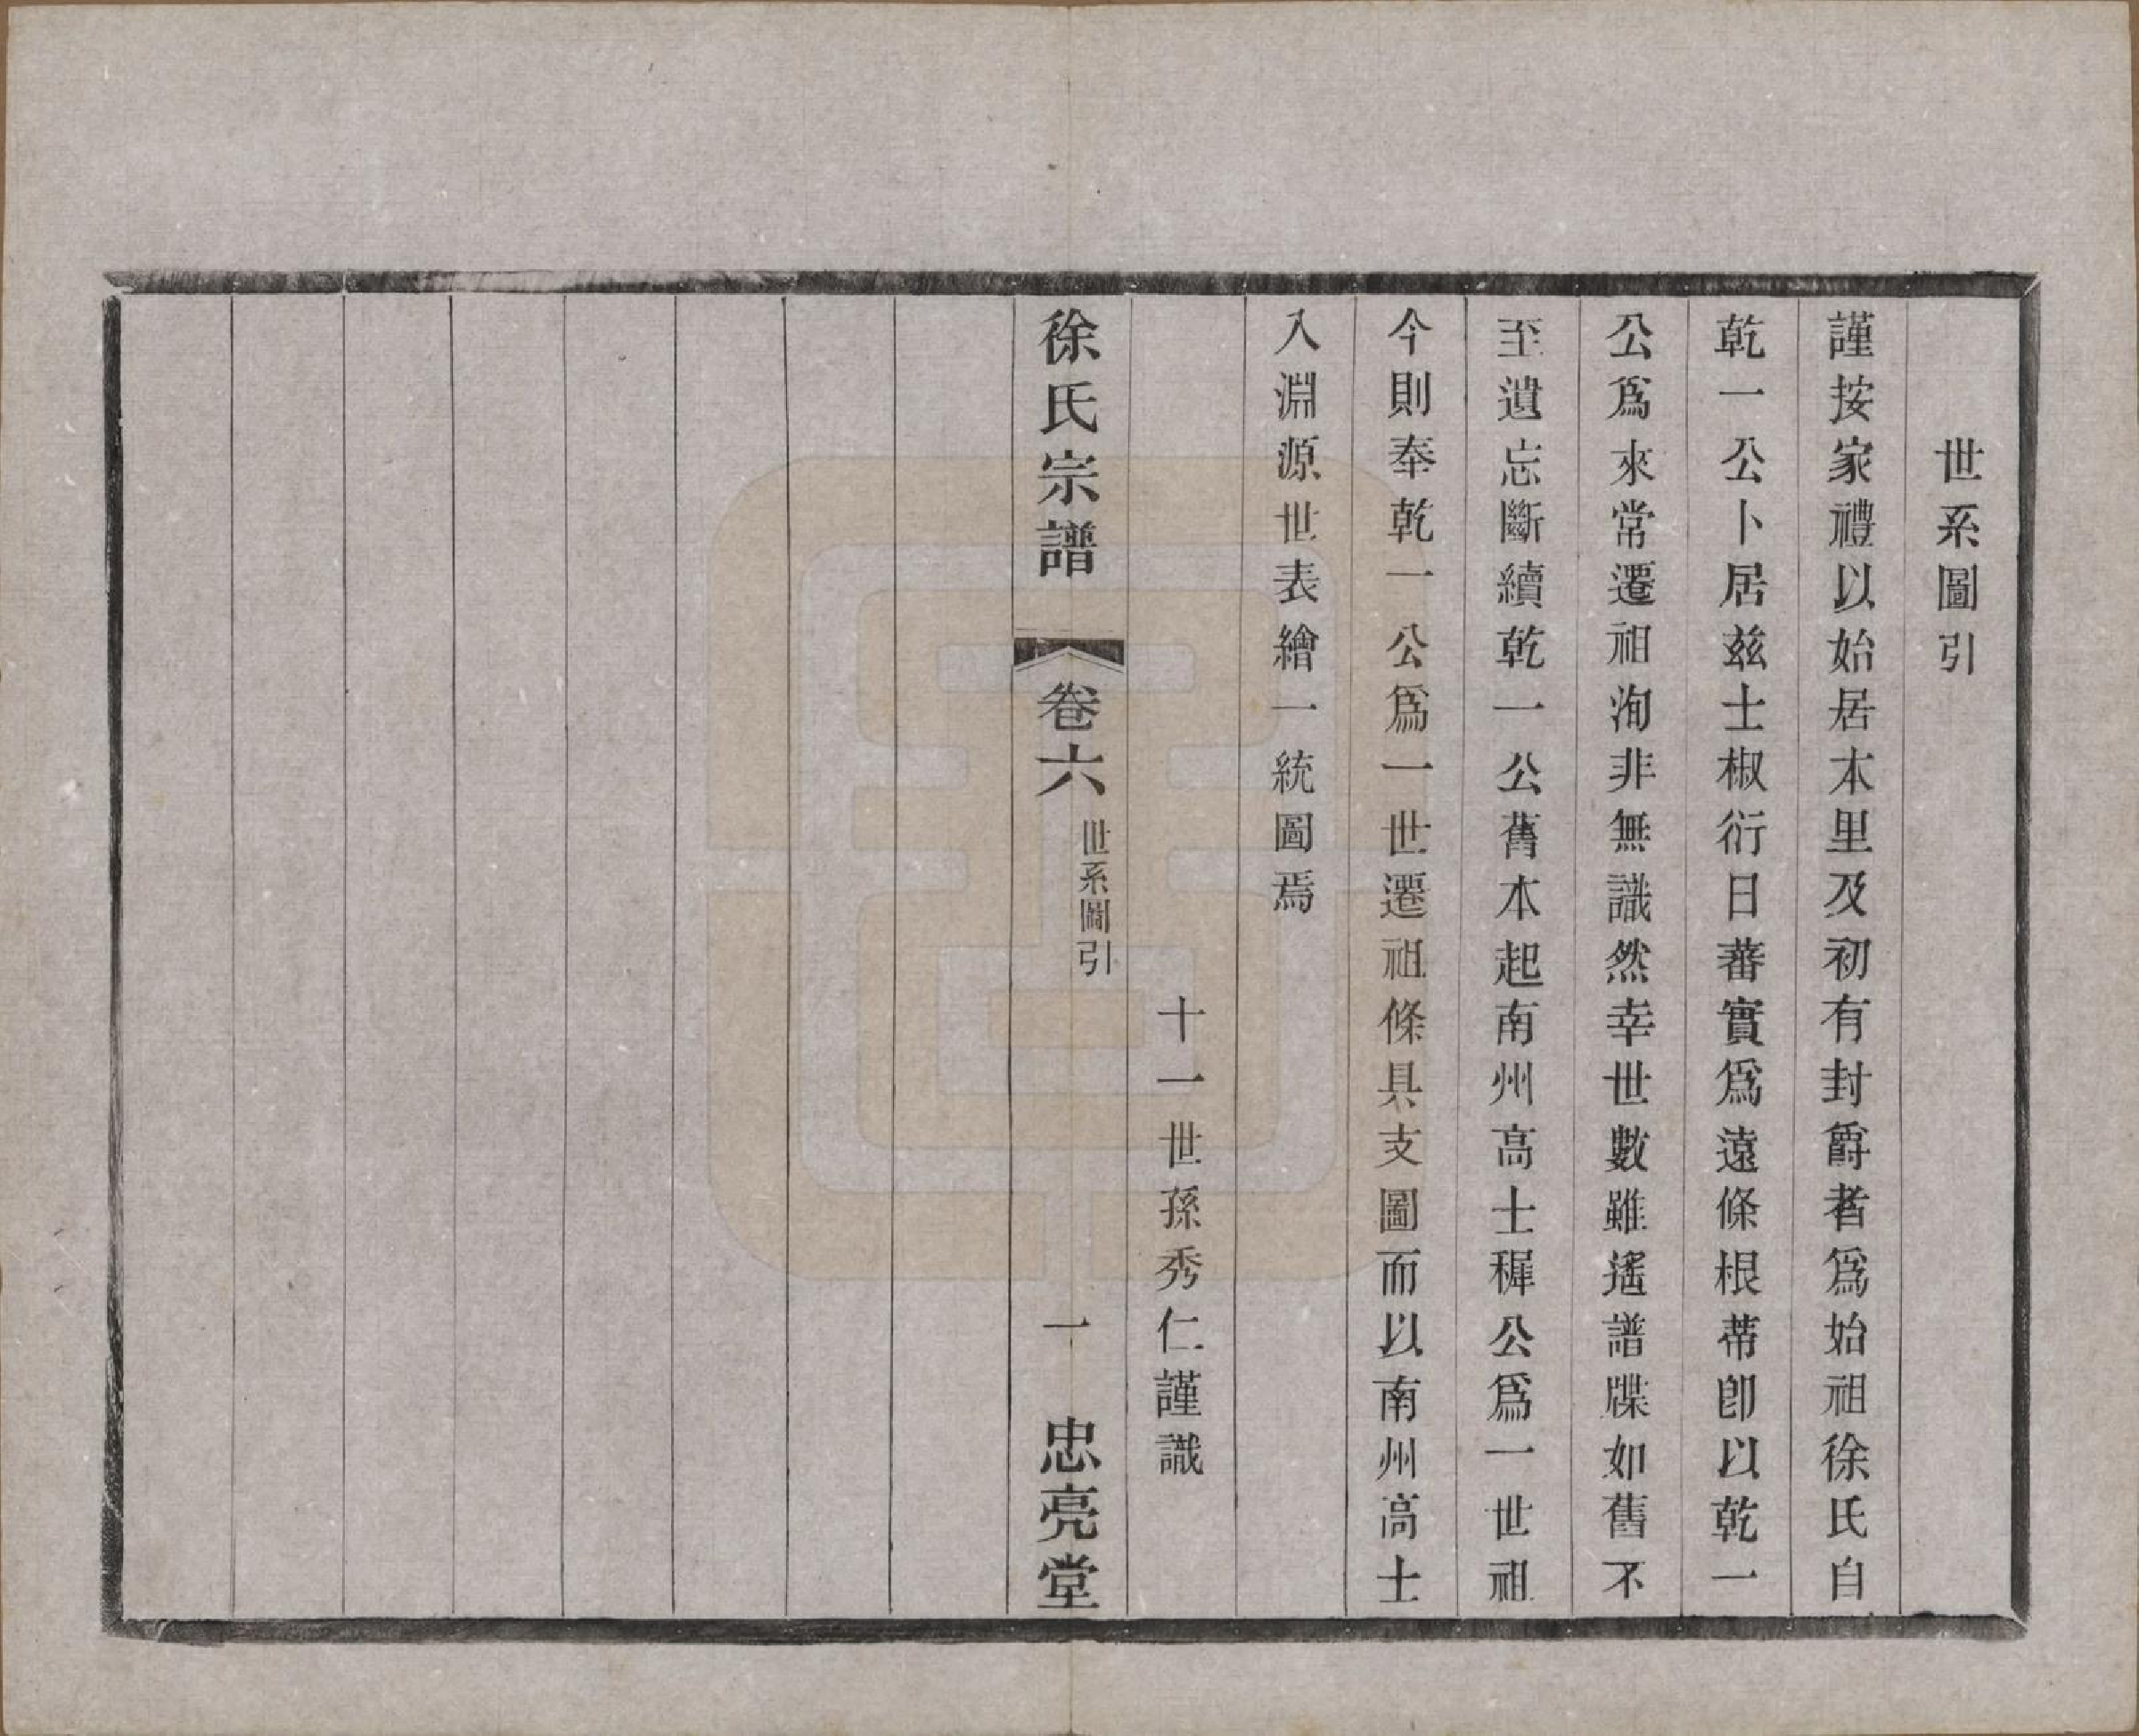 世系圖引
謹按家禮以始居本里及初有封爵者爲始祖徐氏自
乾一公卜居兹土椒衍日蕃實爲遠條根蒂卽以乾一
公爲來常遷祖洵非無識然幸世數雖遙譜牒如舊不
至遺忘斷續乾一公舊本起南州高士穉公爲一世祖
今則奉乾一公爲一世遷祖條具支圖而以南州高士
入淵源世表繪一統圖焉
十一世孫秀仁謹識
徐氏宗譜 卷六 世系圖引 一 忠亮堂